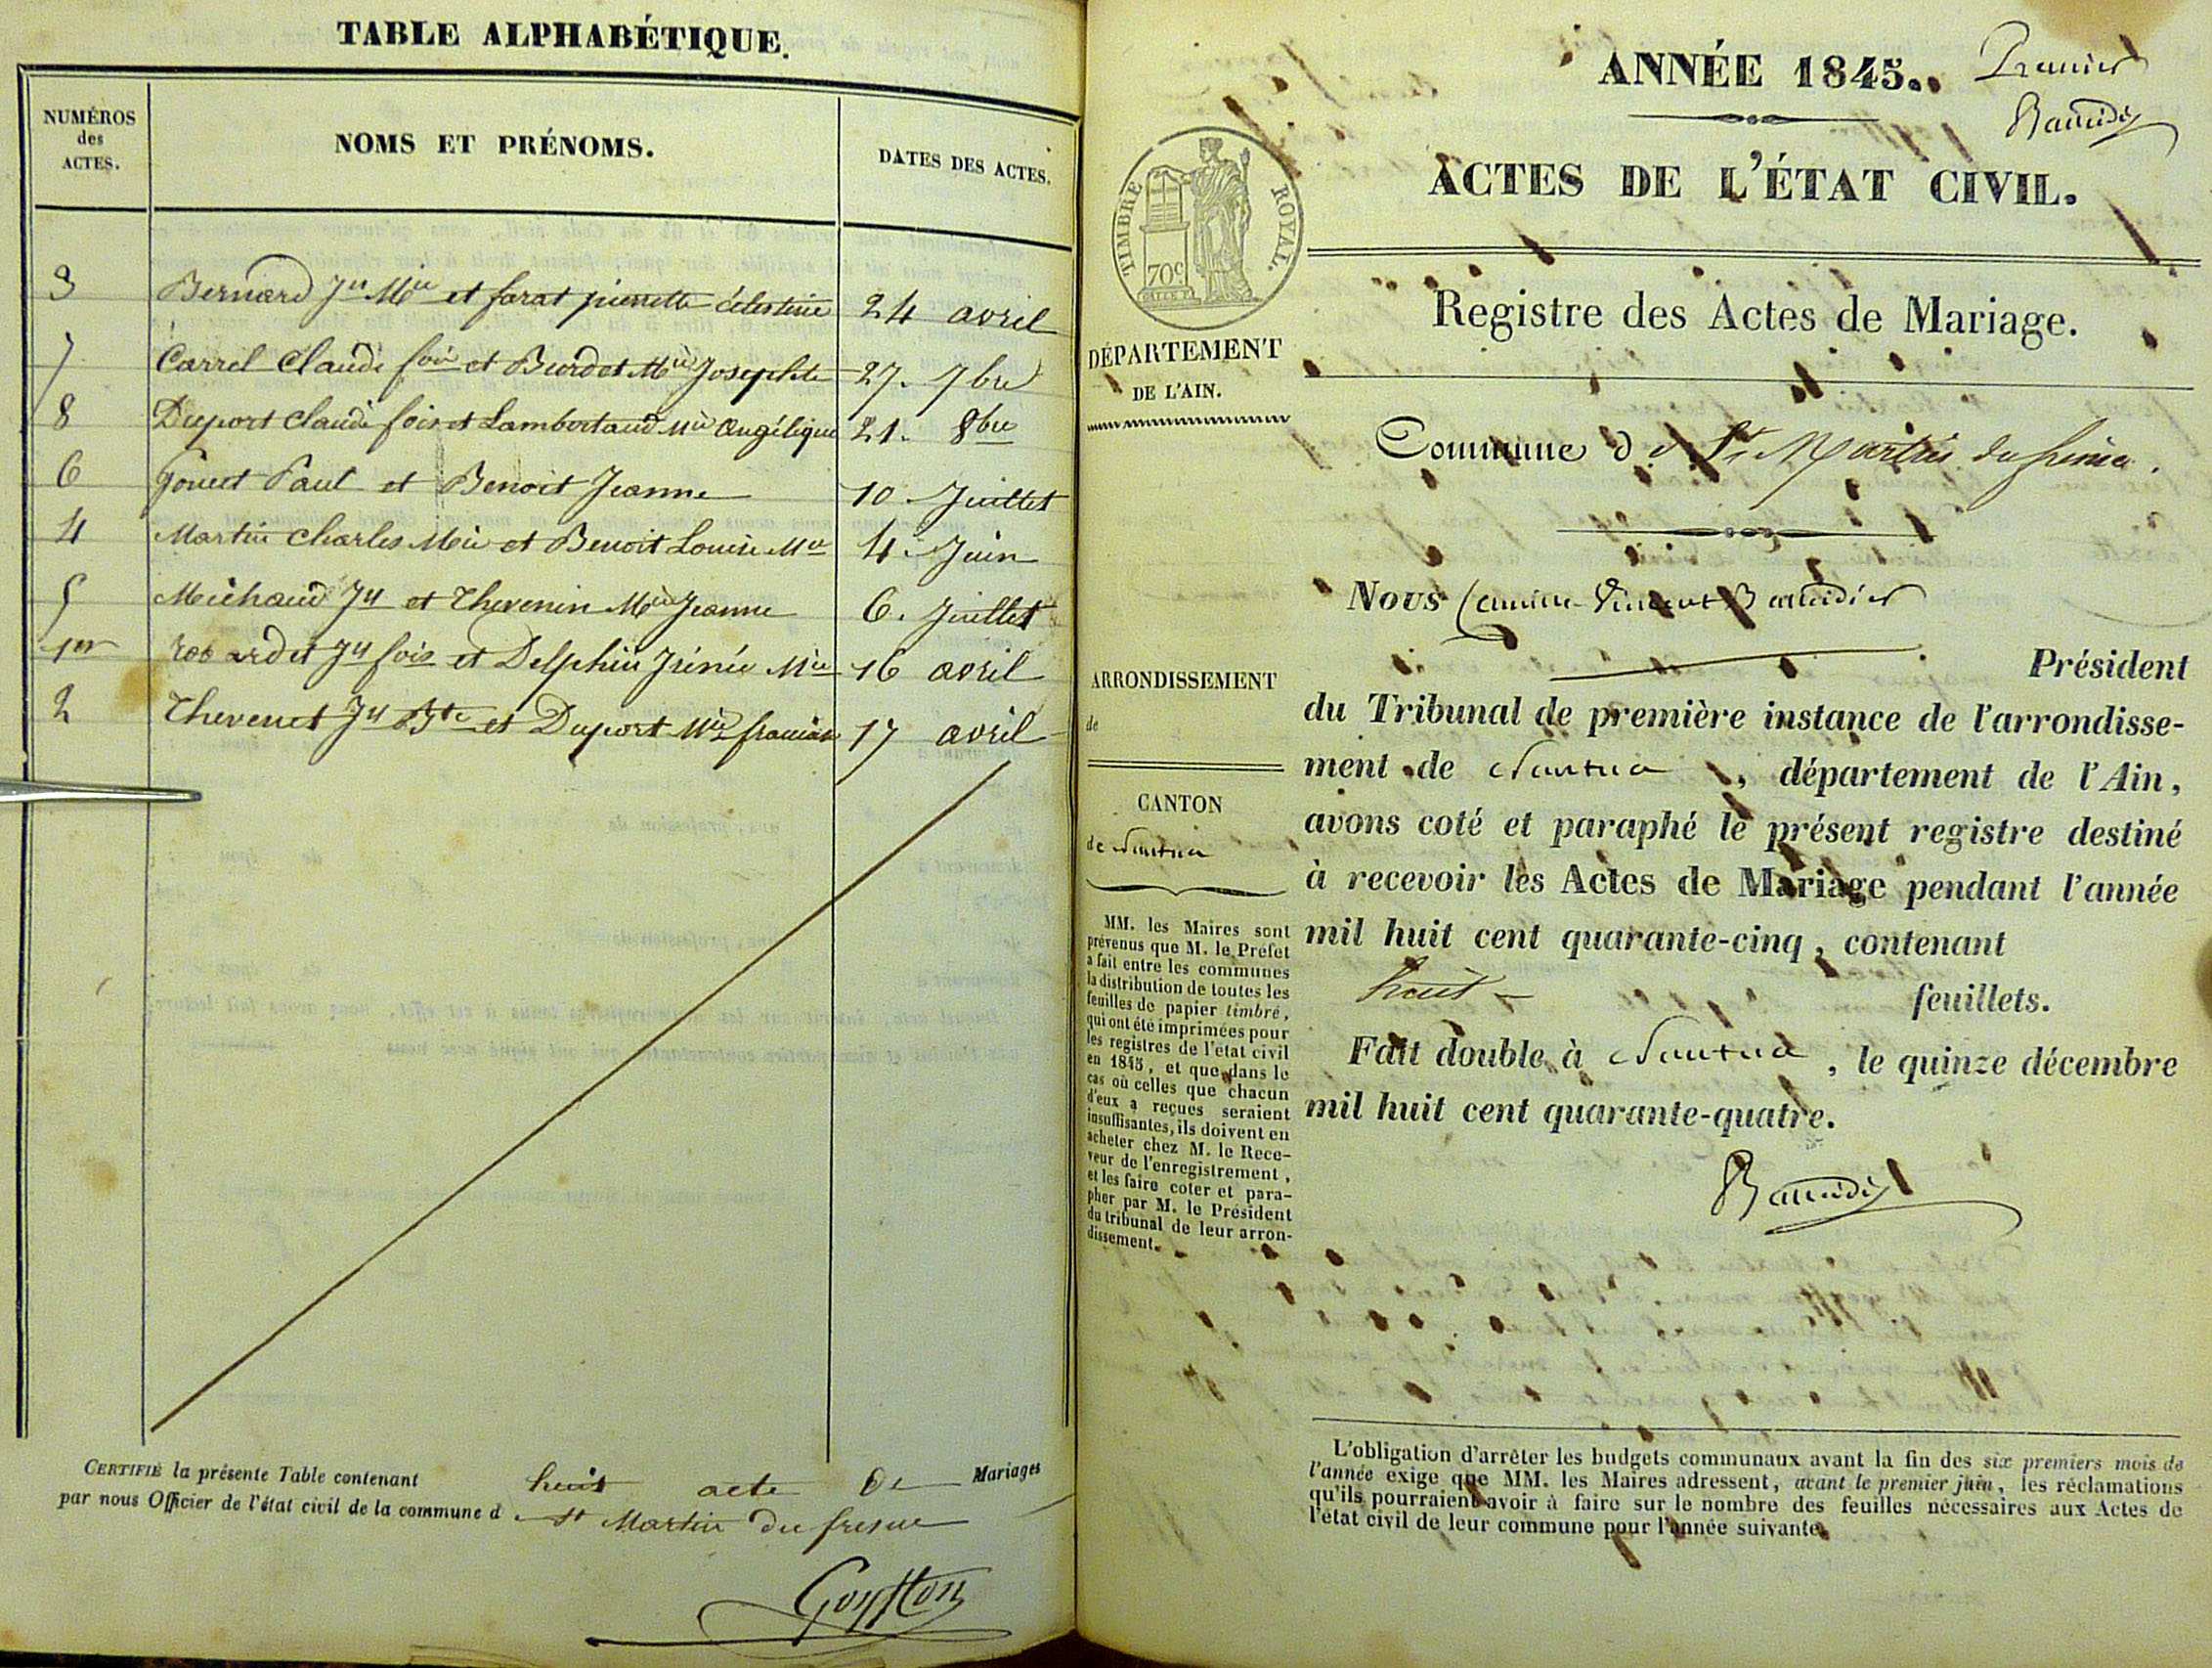 TABLE ALPHABÉTIQUE.
NUMÉROS
des
ACTES.
NOMS ET PRÉNOMS.
DATES DES ACTES.
3 Bernard Jn Mie et farat pierrette célestine 24 avril
7 Carrel Claude fois et Burdet Mie Josephte 27. 7bre
8 Duport Claude fois et Lambertaud Mie angélique 21. 8bre
6 Gouet Paul et Benoit Jeanne 10. Juillet
4 Martin Charles Mie et Benoit Louise Mie 4. Juin
5 Michaud Jn et Thevenin Mie Jeanne 6. Juillet
1er Jn fois et Delphin Irénée Mie 16 avril
2 Thevenet Jn Bte et Duport Mie 17 avril
CERTIFIÉ la présente Table contenant huit acte de Mariages
par nous Officier de l'état civil de la commune d St Martin du fresne
ANNÉE 1845.
Premier
Baudier
ACTES DE L'ÉTAT CIVIL.
TIMBRE ROYAL.
70c
Registre des Actes de Mariage.
DÉPARTEMENT
DE L'AIN.
Commune de St Martin du fresne.
Nous Vincent
ARRONDISSEMENT
de
Président
du Tribunal de première instance de l'arrondisse-
ment de Nantua, département de l'Ain,
avons coté et paraphé le présent registre destiné
à recevoir les Actes de Mariage pendant l'année
mil huit cent quarante-cinq, contenant
huit feuillets.
Fait double à Nantua, le quinze décembre
mil huit cent quarante-quatre.
CANTON
de Nantua
MM. les Maires sont
prévenus que M. le Préfet
a fait entre les communes
la distribution de toutes les
feuilles de papier timbré,
qui ont été imprimées pour
les registres de l'état civil
en 1845, et que dans le
cas où celles que chacun
d'eux a reçues seraient
insuffisantes, ils doivent en
acheter chez M. le Rece-
veur de l'enregistrement,
et les faire coter et para-
pher par M. le Président
du tribunal de leur arron-
dissement.
L'obligation d'arrêter les budgets communaux avant la fin des six premiers mois de
l'année exige que MM. les Maires adressent, avant le premier juin, les réclamations
qu'ils pourraient avoir à faire sur le nombre des feuilles nécessaires aux Actes de
l'état civil de leur commune pour l'année suivante.